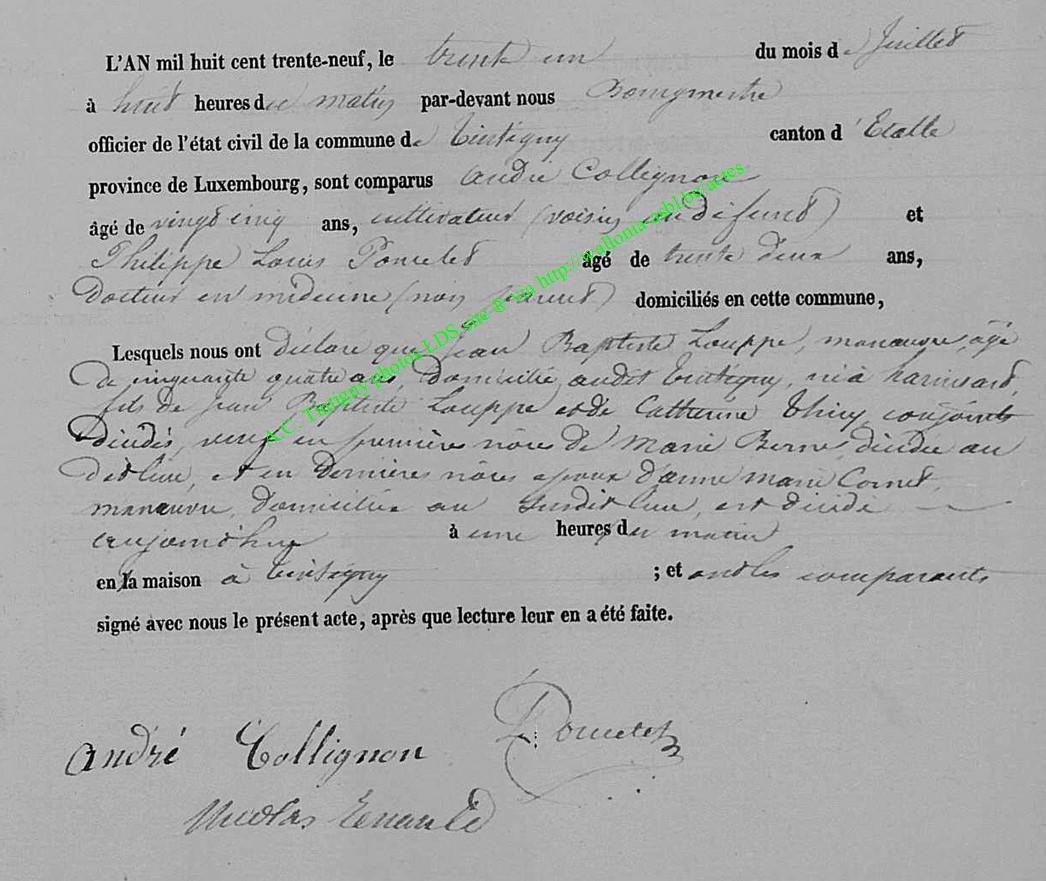 L'AN mil huit cent trente-neuf, le trente un du mois de Juillet
à huit heures du matin par-devant nous Bourgmestre
officier de l'état civil de la commune de Tintigny canton d'Etalle
province de Luxembourg, sont comparus andré Collignon
âgé de vingt cinq ans, cultivateur (voisin du défunt) et
Philippe Louis Poncelet âgé de trente deux ans,
Docteur en médecine (non parent) domiciliés en cette commune,
Lesquels nous ont déclaré que jean Baptiste Louppe, manœuvre, âgé
de cinquante quatre ans Domicilié audit tintigny, né à harinsart,
fils de jean Baptiste Louppe et de Catherine Thiry, conjoints
Décédés, veuf en première nôce de Marie Berne, décédée au
dit lieu, et en dernières nôces epoux d'anne marie Cornet,
manœuvre, domiciliée au susdit lieu, est décédé
aujourd'hui à une heures du matin
en la maison à tintigny ; et ont les comparants
signé avec nous le présent acte, après que lecture leur en a été faite.
A.C. Tintigny photos LDS, site ® via http://wallonia-asbl.be/actes
andré Collignon Poncelet
Nicolas